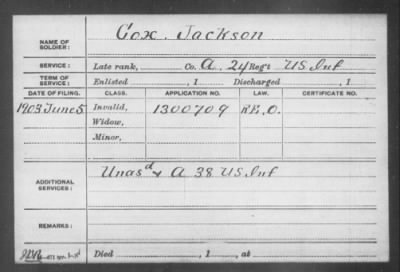 NAME OF SOLDIER: Cox, Jackson
SERVICE: Late rank, Co. A, 24 Regt US Inf
TERM OF SERVICE: Enlisted , 1 Discharged , 1
DATE OF FILING. CLASS. APPLICATION NO. LAW. CERTIFICATE NO.
1903 June 5 Invalid, 1300709
Widow,
Minor,
ADDITIONAL SERVICES: Unasd & A 38 US Inf
REMARKS:
Died , 1 , at